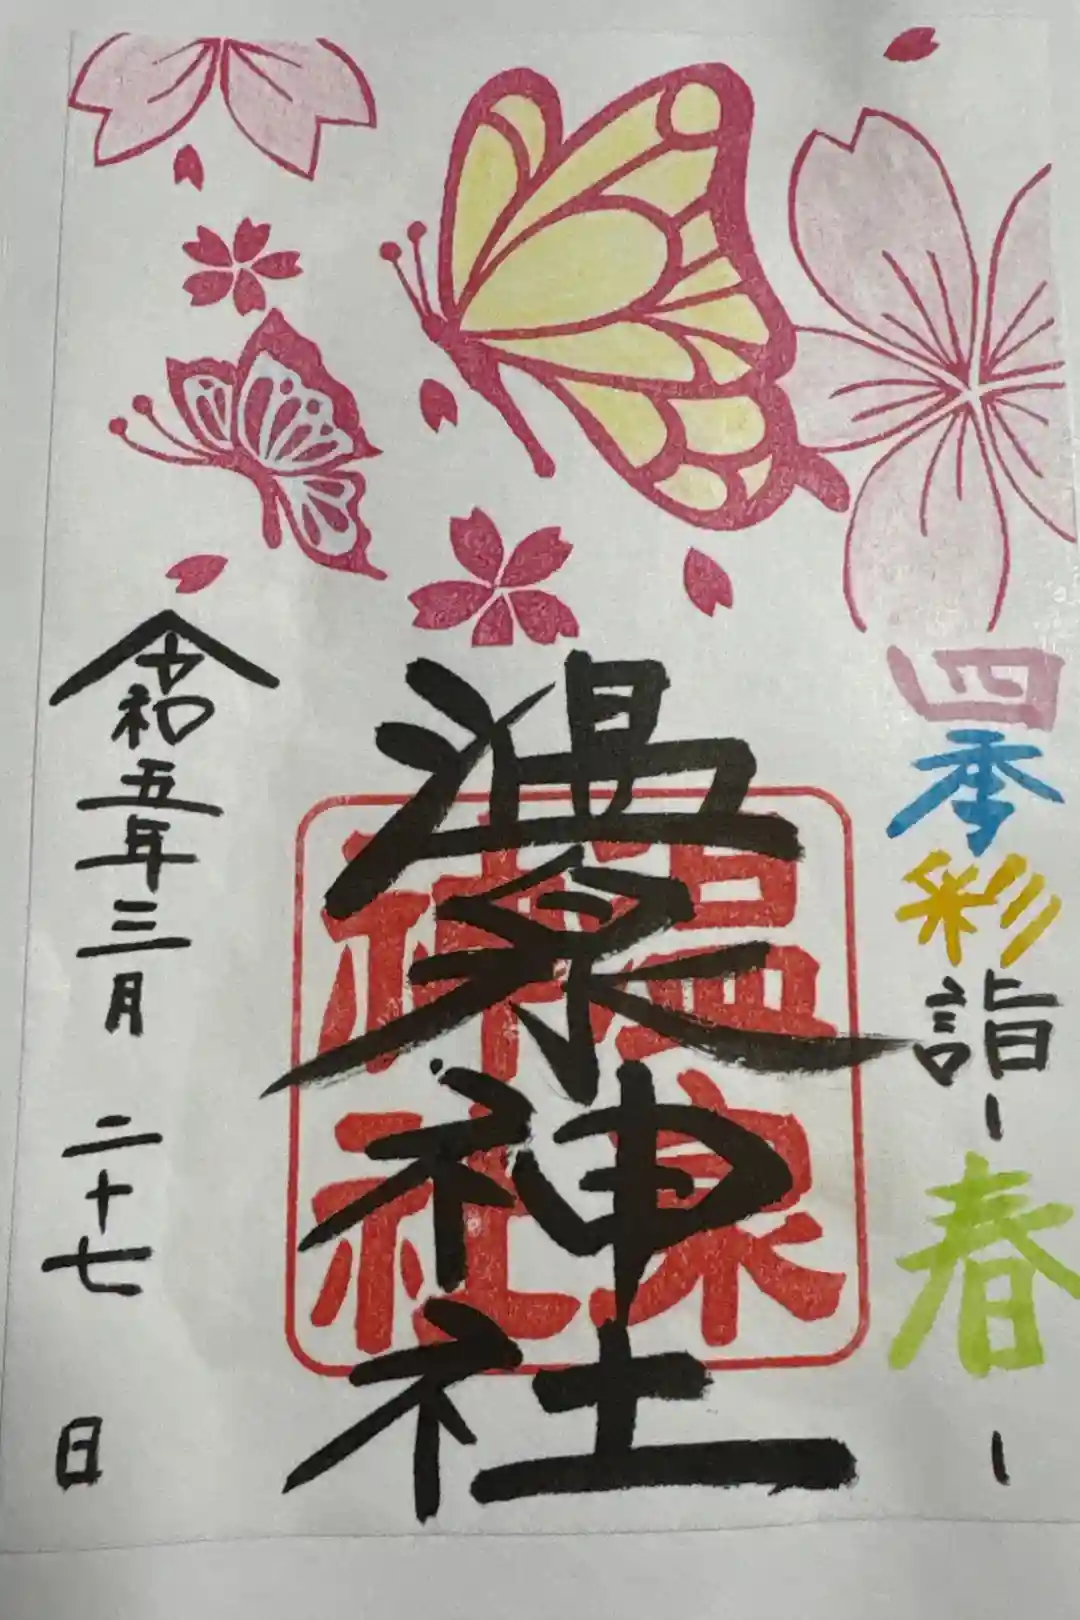 四季彩詣-春-
温泉神社
温泉神社
令和五年三月 二十七 日